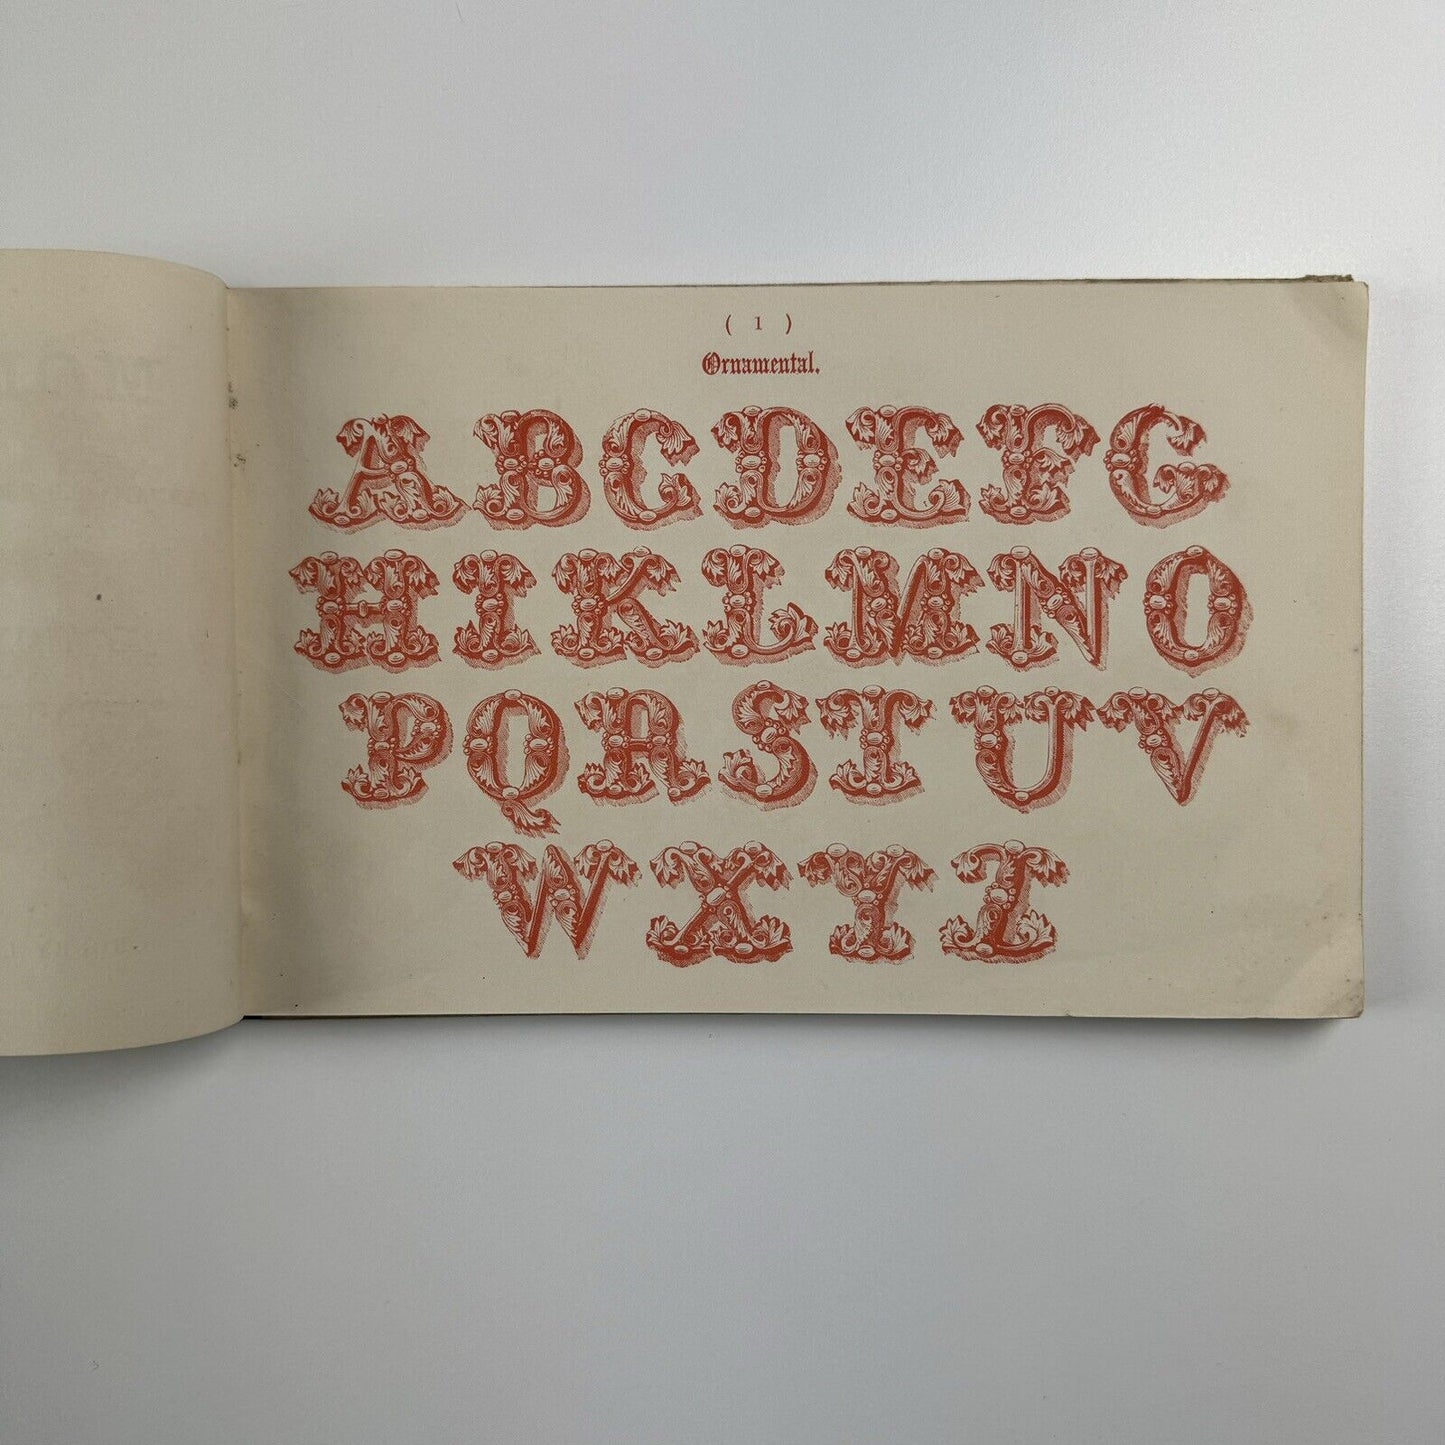 ( 1 )
Ornamental.
ABCDEFG
HIKLMNO
PQRSTUV
WXYZ